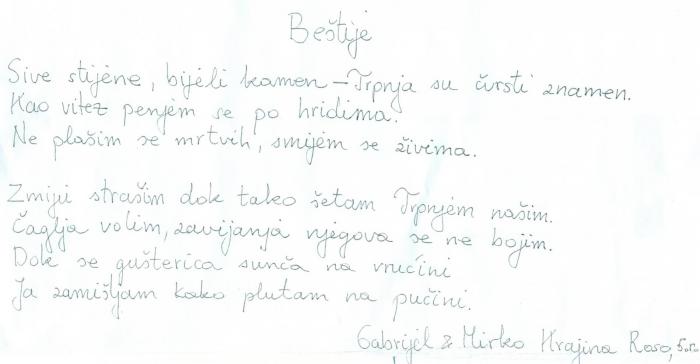 Beštije
Sive stijene, bijeli kamen – Trpnja su čvrsti znamen.
Kao vitez penjem se po hridima.
Ne plašim se mrtvih, smijem se živima.
Zmiju strašim dok tako šetam Trpnjem našim.
Čaglja volim, zavijanja njegova se ne bojim.
Dok se gušterica sunča na vrućini
Ja zamišljam kako plutam na pučini.
Gabrijel & Mirko Krajina Roso, 5.r.